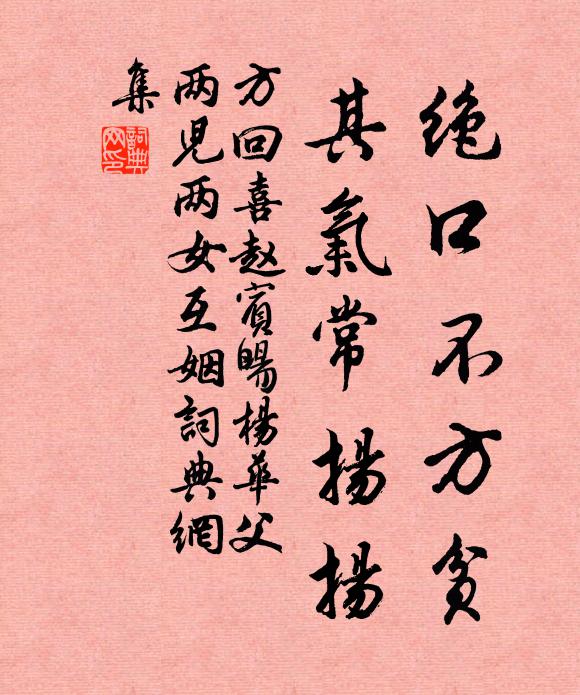 绝口不方贫
其氣常揚揚
方回喜赵賓暘楊華父
两児两女互姻詞典網
集
詞典网印